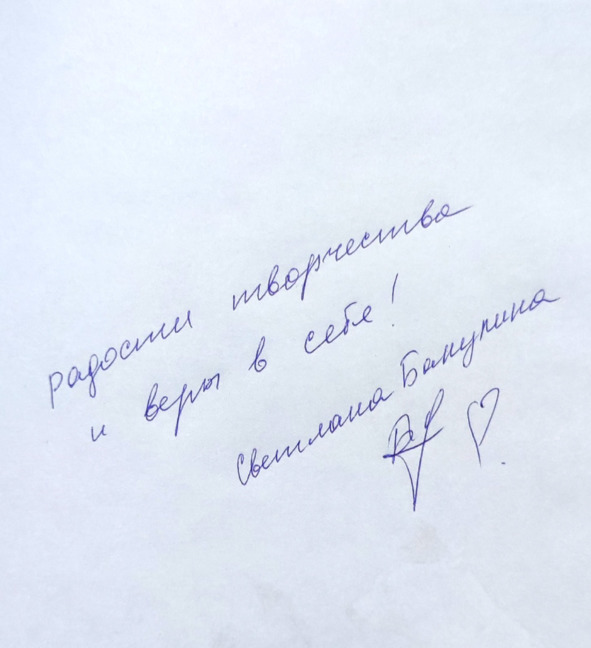 радости творчества
и веры в себя!
Светлана Бакулина